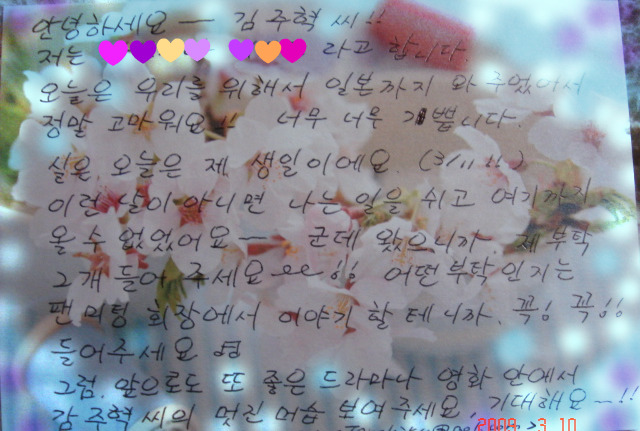 안녕하세요 — 김주혁 씨!!
저는 라고 합니다.
오늘은 우리를 위해서 일본까지 와 주었어서
정말 고마워요!! 너무 너무 기쁩니다.
실은 오늘은 제 생일이에요. (3/11!!)
이런 날이 아니면 나는 일을 쉬고 여기까지
올 수 없었어요— 군데 왔으니까. 제 부탁
그개 들어 주세요 !! 어떤 부탁인지는
팬 미팅 회장에서 이야기 할 테니까. 꼭! 꼭!!
들어주세요
그럼. 앞으로도 또 좋은 드라마나 영화 안에서
김주혁 씨의 멋진 머습 보여주세요. 기대해요—!!
2009 3 10